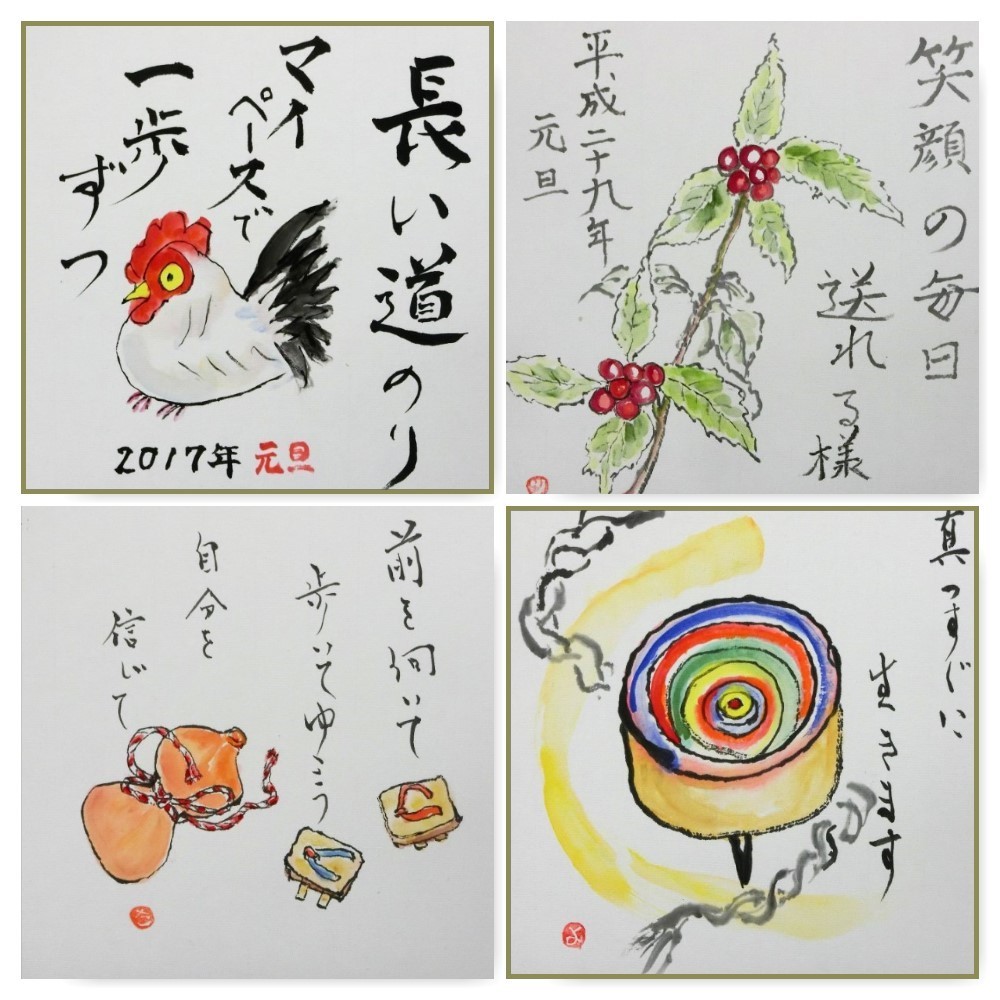 長い道のり
マイ
ペースで
一歩
ずつ
2017年 元旦
笑顔の毎日
送れる様
平成二十九年
元旦
前を向いて
歩いてゆこう
自分を
信じて
真っすぐに
生きます